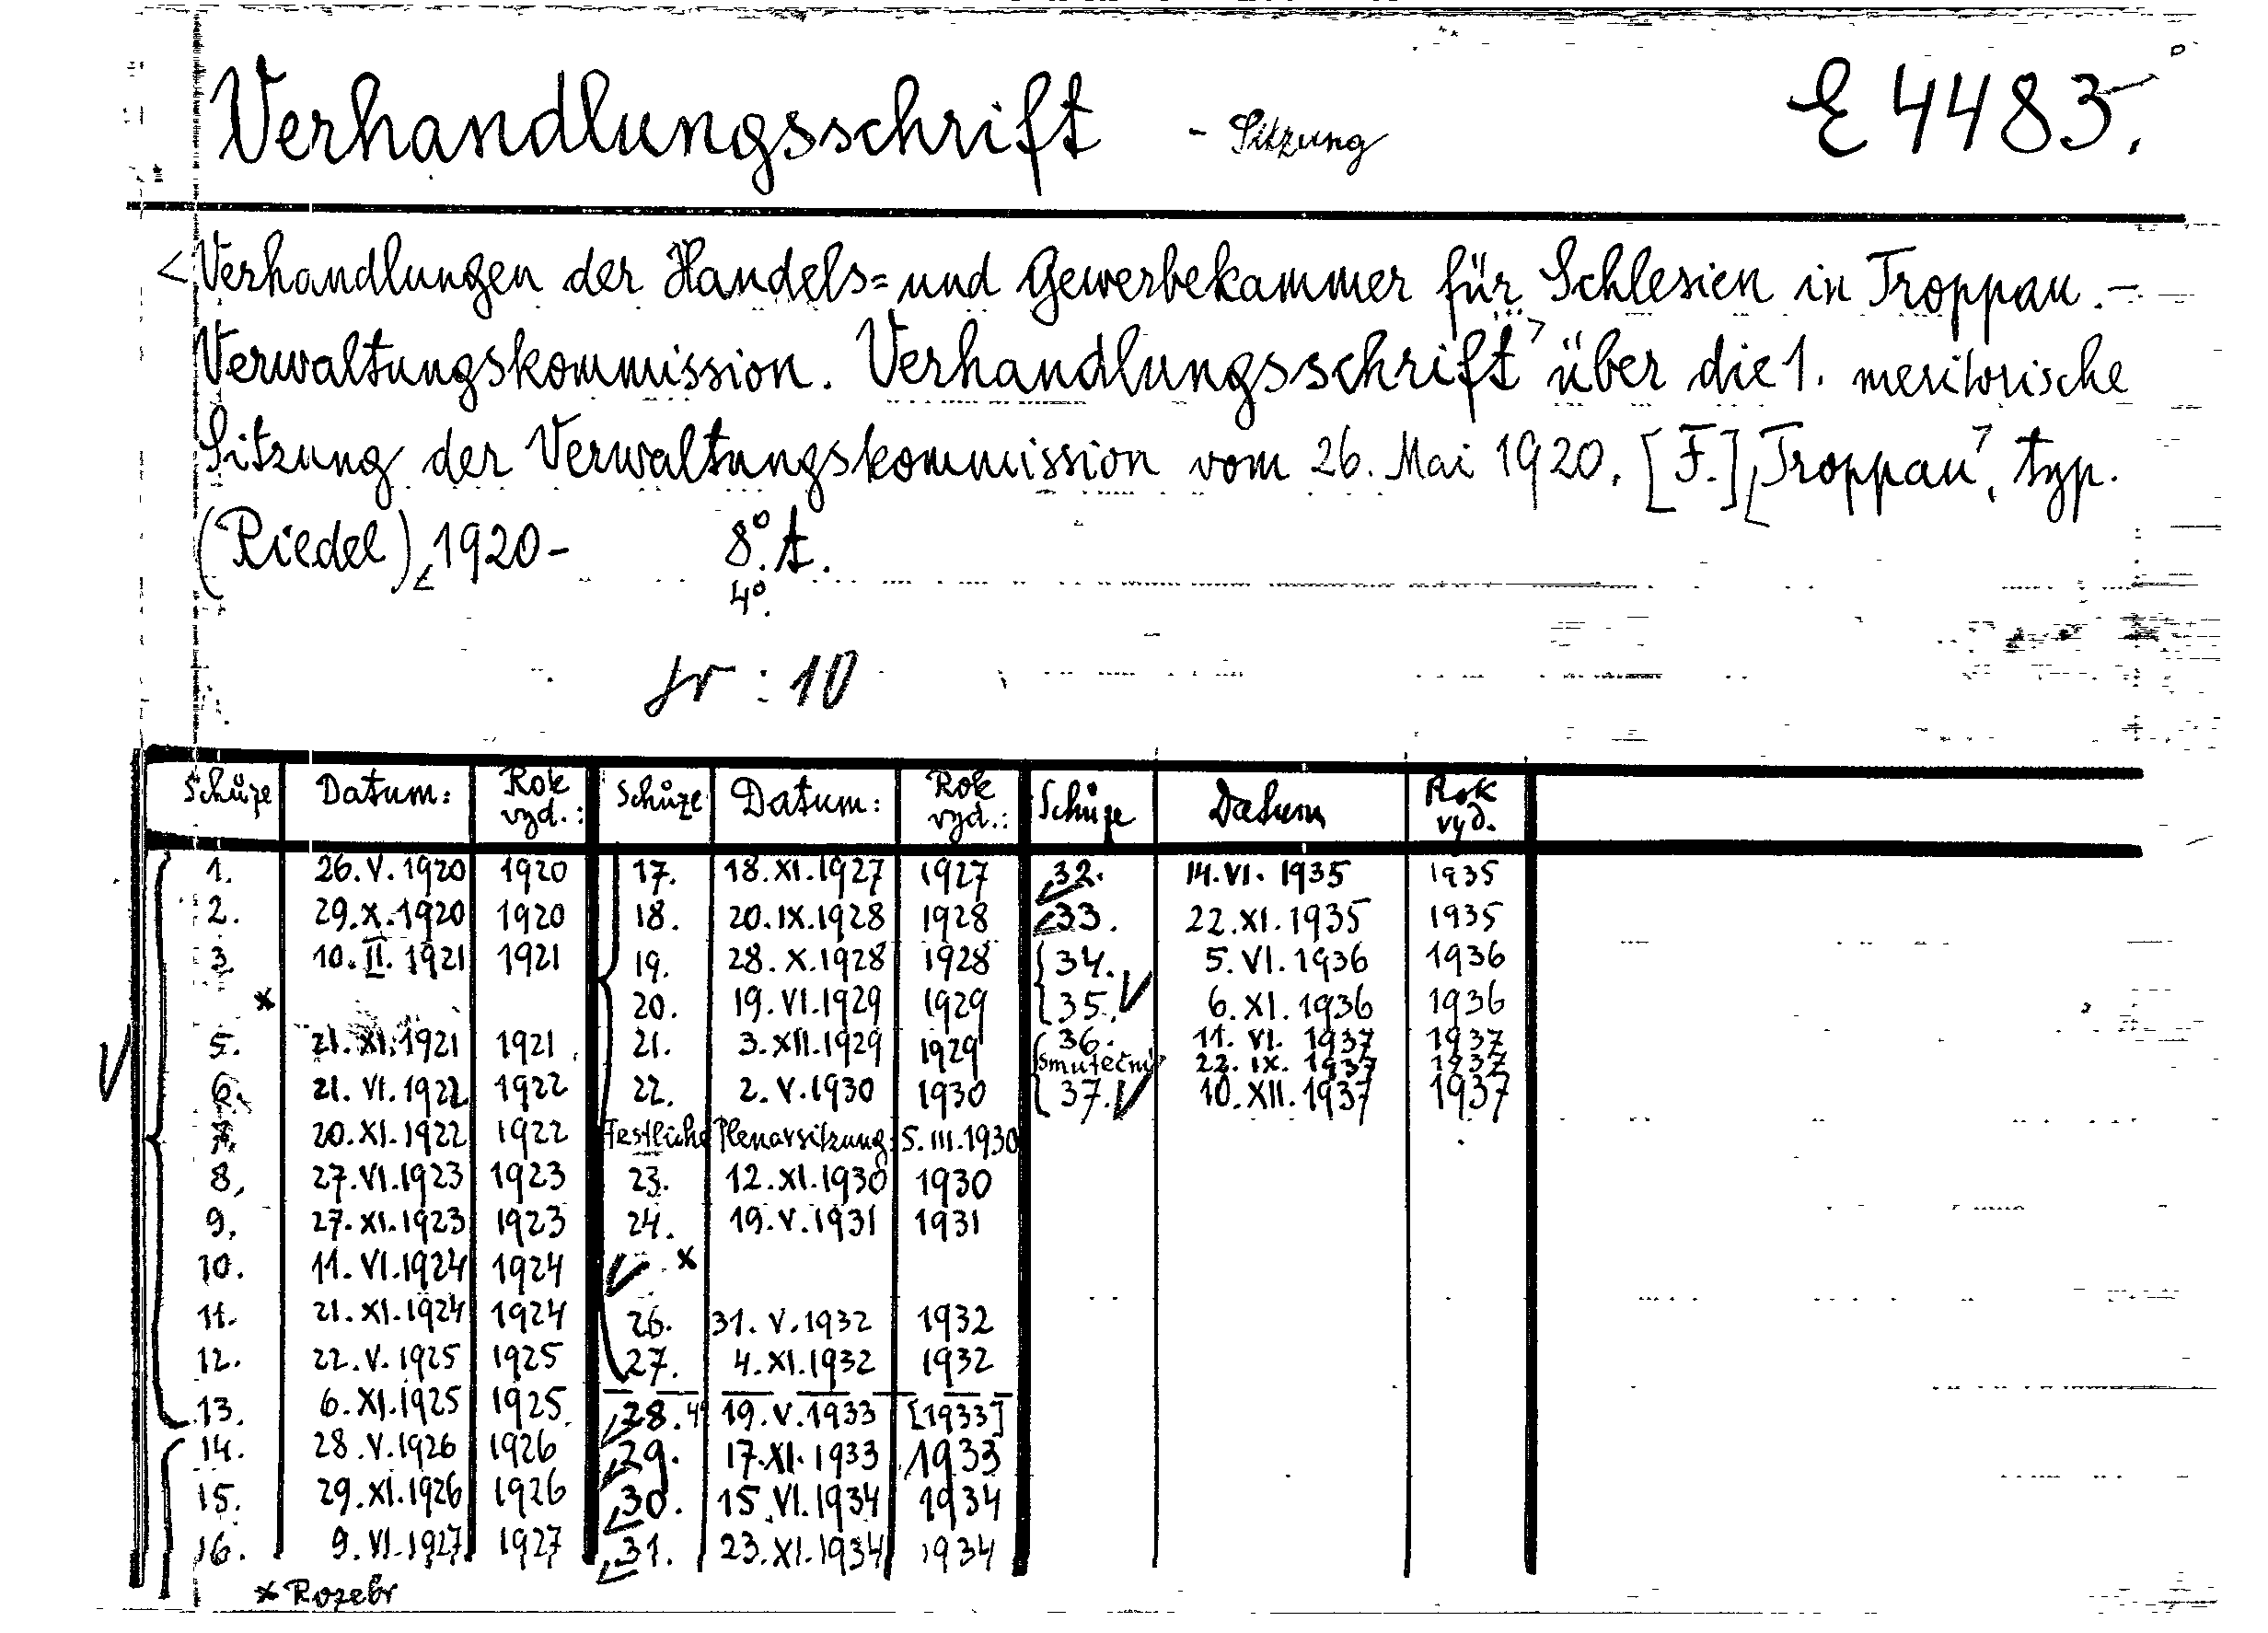 Verhandlungsschrift - Sitzung E 4483.
<Verhandlungen der Handels= und Gewerbekammer für Schlesien in Troppau. –
Verwaltungskommission. Verhandlungsschrift> über die 1. meritorische
Sitzung der Verwaltungskommission vom 26. Mai 1920. [F.], Troppau, typ.
(Riedel), 1920- 8°. A.
4°.
: 10
Schůze Datum: Rok vyd.: Schůze Datum: Rok vyd.: Schůze Datum Rok vyd.
1. 26.V.1920 1920 17. 18.XI.1927 1927 32. 14.VI.1935 1935
2. 29.X.1920 1920 18. 20.IX.1928 1928 33. 22.XI.1935 1935
3. 10.II.1921 1921 19. 28.X.1928 1928 34. 5.VI.1936 1936
* 20. 19.VI.1929 1929 35. 6.XI.1936 1936
5. 21.XI.1921 1921 21. 3.XII.1929 1929 36. 11.VI.1937 1937
smuteční 22.IX.1937 1937
6. 21.VI.1922 1922 22. 2.V.1930 1930 37. 10.XII.1937 1937
7. 20.XI.1922 1922 Festliche Plenarsitzung: 5.III.1930
8. 27.VI.1923 1923 23. 12.XI.1930 1930
9. 27.XI.1923 1923 24. 19.V.1931 1931
10. 11.VI.1924 1924 *
11. 21.XI.1924 1924 26. 31.V.1932 1932
12. 22.V.1925 1925 27. 4.XI.1932 1932
13. 6.XI.1925 1925 28. 4° 19.V.1933 [1933]
14. 28.V.1926 1926 29. 17.XI.1933 1933
15. 29.XI.1926 1926 30. 15.VI.1934 1934
16. 9.VI.1927 1927 31. 23.XI.1934 1934
* Rozebr